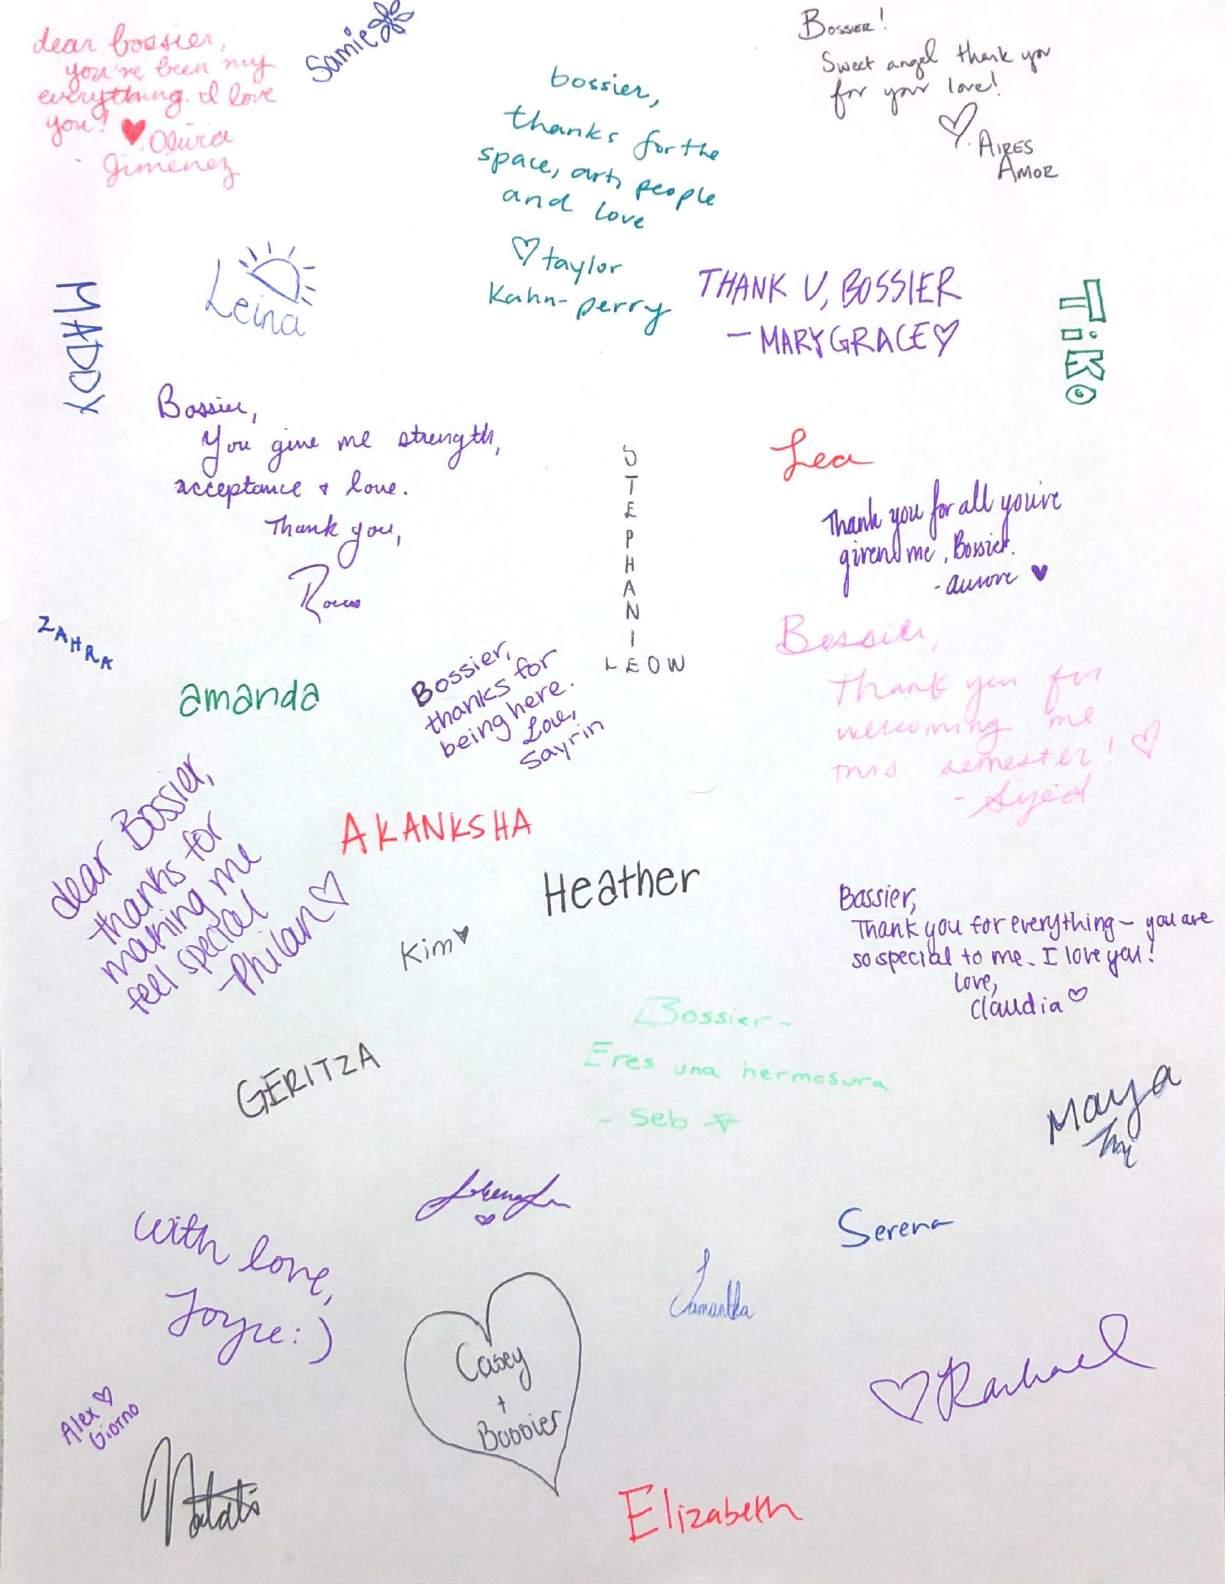 dear bossier,
you've been my
everything. I love
you! ♥ Olivia
Jimenez
Samie
bossier,
thanks for the
space, art, people
and love
♡ taylor
Kahn-perry
Bossier!
Sweet angel thank you
for your love!
♡ Aires
Amor
MADDY
Leina
THANK U, BOSSIER
— MARY GRACE ♡
TiKo
Bossier,
You give me strength,
acceptance + love.
Thank you,
STEPHANIE
LEOW
Lea
Thank you for all you've
given me, Bossier.
- aurore ♥
ZAHRA
amanda
Bossier,
thanks for
being here.
Love,
Sayrin
Bossier,
Thank you for
welcoming me
this semester! ♡
- Syed
dear Bossier,
thanks for
making me
feel special
- Philan ♡
AKANKSHA
Heather
Kim ♥
Bossier,
Thank you for everything - you are
so special to me. I love you!
Love,
Claudia ♡
GERITZA
Bossier-
Eres una hermosura
- Seb
Maya
With love,
Joyce :)
Serena
Samantha
Casey
+
Bossier
♡ Rachael
Alex ♡
Giorno
Elizabeth